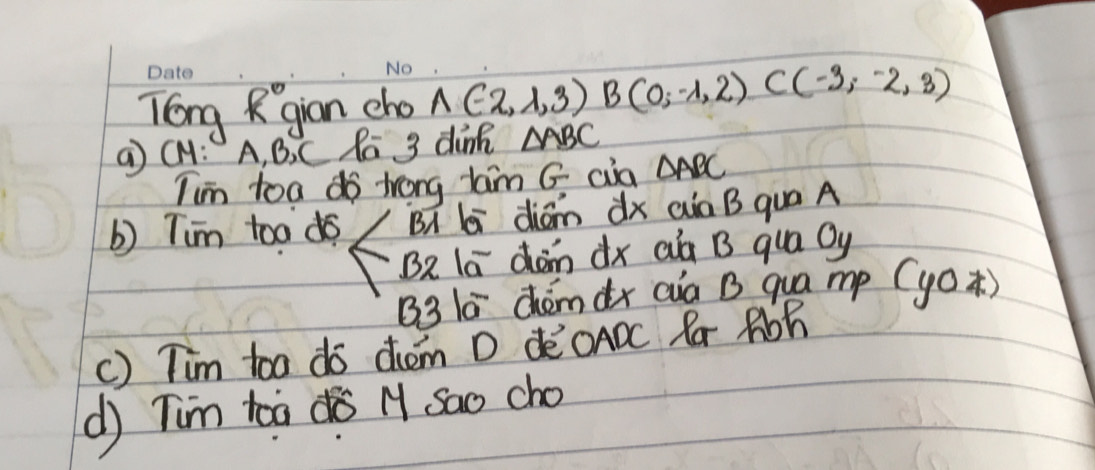 Date No
Trong K° gian cho A (-2, 1, 3) B (0; -1, 2) C (-3; -2, 3)
a) CM: A, B, C là 3 đỉnh ΔABC
Tìm toạ độ trọng tâm G của ΔABC
b) Tìm toạ độ B1 là điểm dx của B qua A
B2 là điểm dx của B qua Oy
B3 là điểm dx của B qua mp (yOz)
c) Tìm toạ độ điểm D để OADC là hbh
d) Tìm toạ độ M sao cho